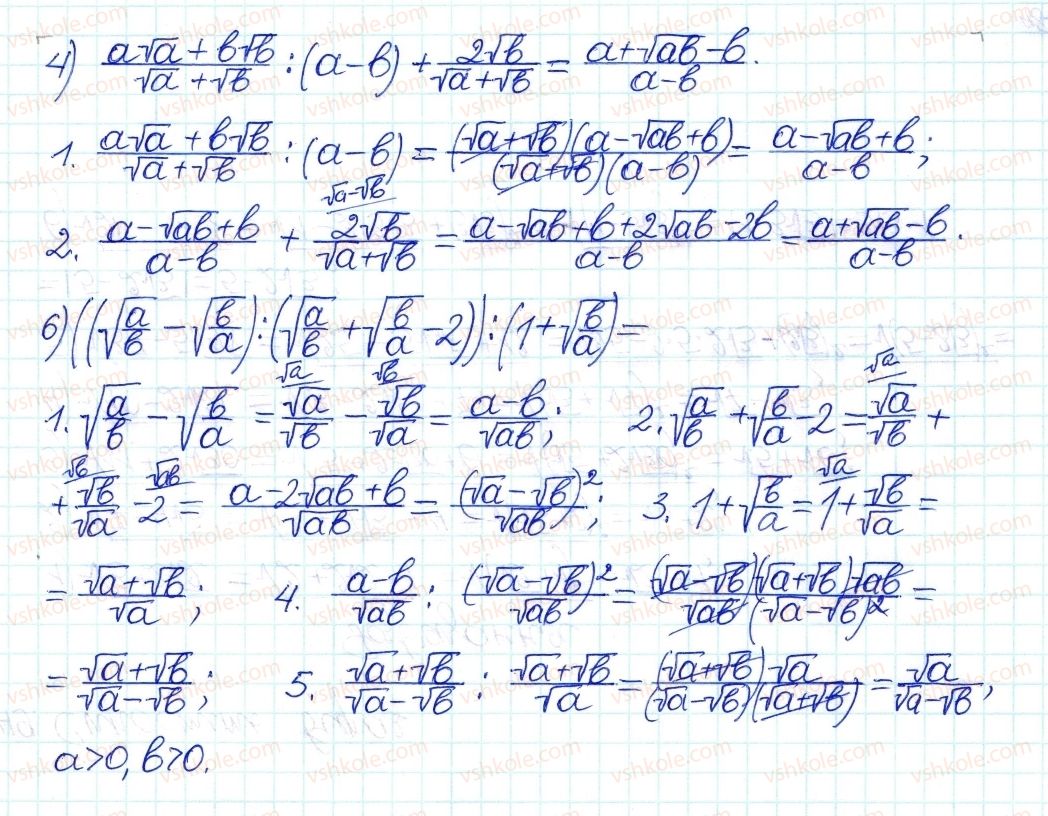 4) (a√a + b√b)/(√a + √b) : (a − b) + 2√b/(√a + √b) = (a + √ab − b)/(a − b).
1. (a√a + b√b)/(√a + √b) : (a − b) = (√a + √b)(a − √ab + b)/(√a + √b)(a − b) = (a − √ab + b)/(a − b);
2. (a − √ab + b)/(a − b) + √a−√b/ 2√b/(√a + √b) = (a − √ab + b + 2√ab − 2b)/(a − b) = (a + √ab − b)/(a − b).
6) ((√(a/b) − √(b/a)) : (√(a/b) + √(b/a) − 2)) : (1 + √(b/a)) =
1. √(a/b) − √(b/a) = √a/ √a/√b − √b/ √b/√a = (a − b)/√ab; 2. √(a/b) + √(b/a) − 2 = √a/ √a/√b +
+ √b/ √b/√a − √ab/ 2 = (a − 2√ab + b)/√ab = (√a − √b)²/√ab; 3. 1 + √(b/a) = √a/ 1 + √b/√a =
= (√a + √b)/√a; 4. (a − b)/√ab : (√a − √b)²/√ab = (√a − √b)(√a + √b)√ab/√ab(√a − √b)² =
= (√a + √b)/(√a − √b); 5. (√a + √b)/(√a − √b) : (√a + √b)/√a = (√a + √b)√a/(√a − √b)(√a + √b) = √a/(√a − √b),
a>0, b>0.